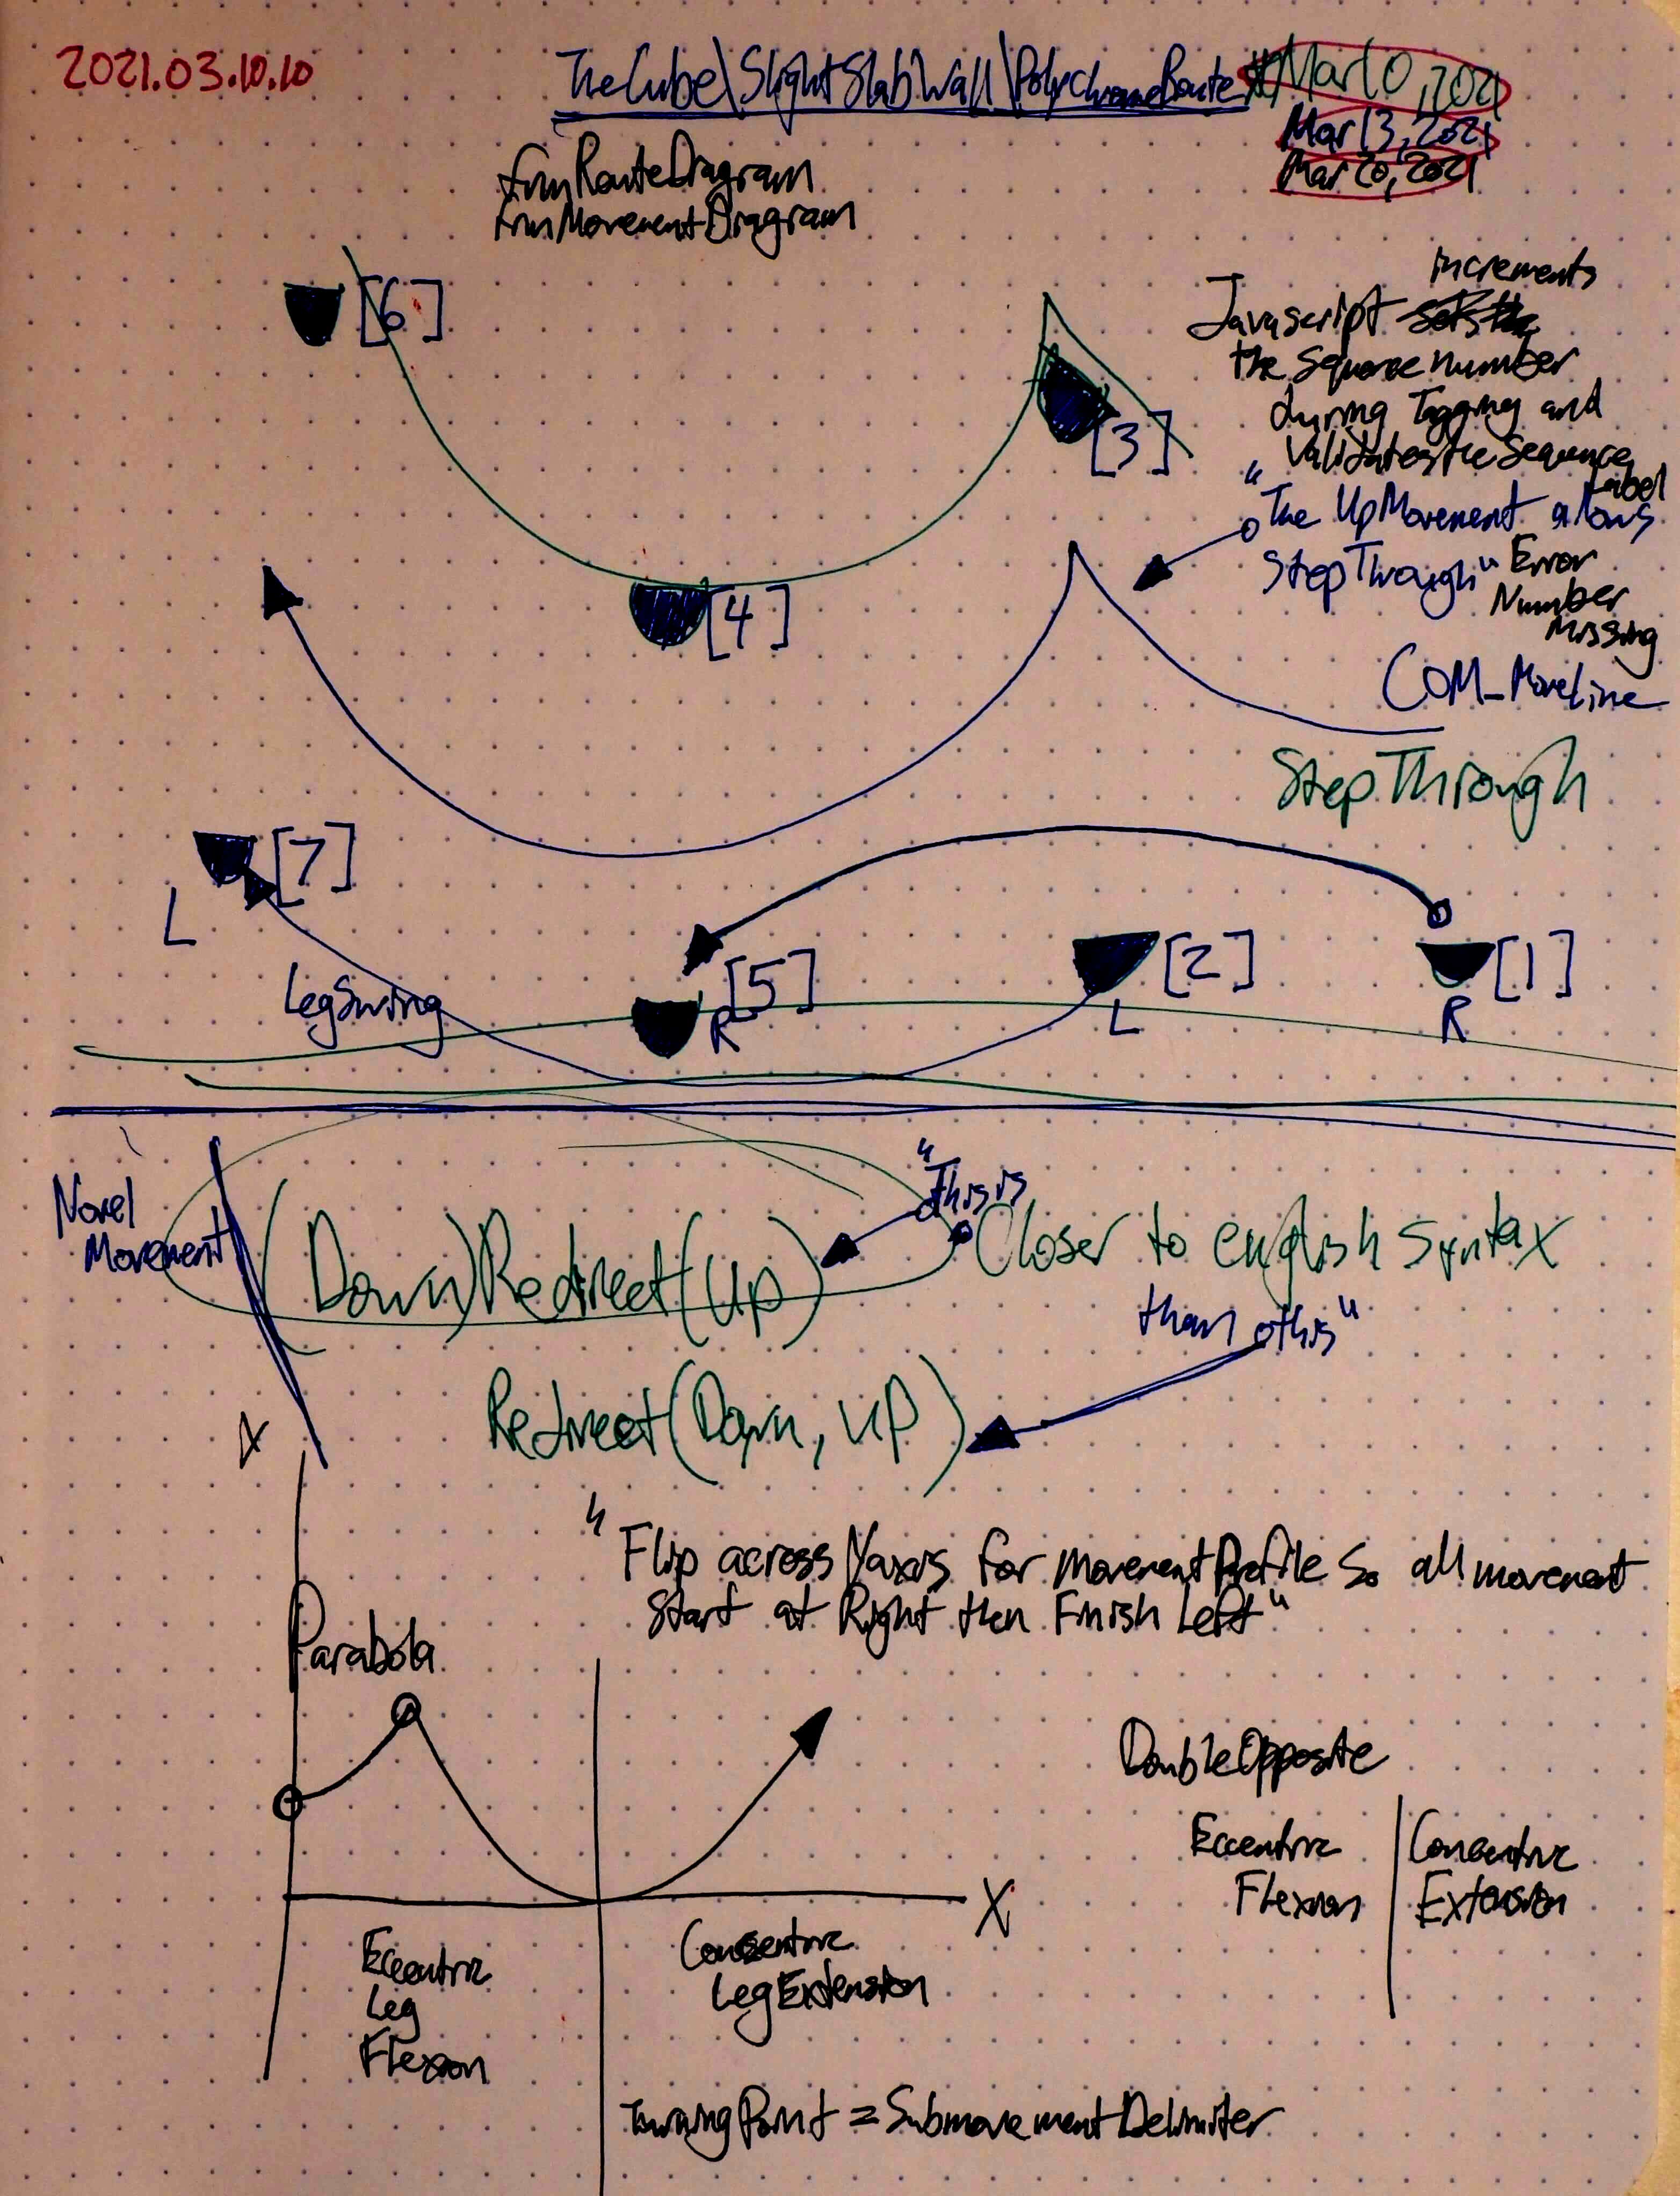 2021.03.10.10
TheCube\SlightSlabWall\PolychromeRoute
Mar10,2021
Mar13,2021
Mar20,2021
frmRouteDiagram
frmMovementDiagram
[6]
[3]
[4]
increments
Javascript
the Square number
during Tagging and
Validates the Sequence
Label
"The UpMovement allows
StepThrough"
Error
Number
Missing
COM_MoveLine
StepThrough
[7]
L
[2]
L
[1]
R
[5]
R
LegSwing
Novel
Movement
(Down)Redirect(Up)
"This is
Closer to english Syntax
than this"
Redirect(Down, UP)
"Flip across Yaxis for movementProfile So all movement
Start at Right then Finish Left"
Parabola
X
DoubleOpposite
Eccentric
Flexion
Concentric
Extension
Eccentric
Leg
Flexion
Concentric
LegExtension
TurningPoint = SubmovementDelimiter